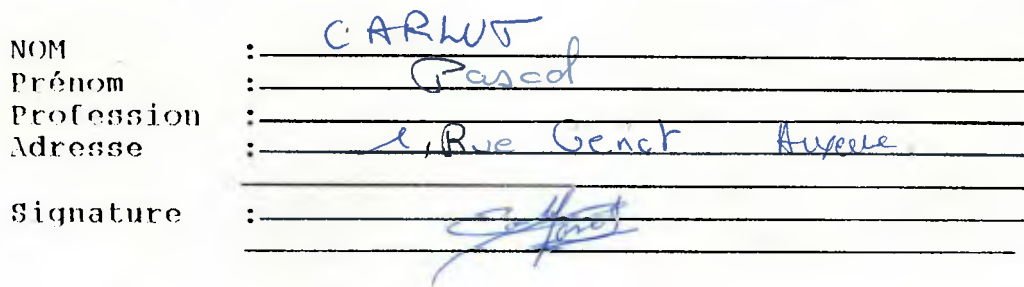 NOM : CARLUT
Prénom : Pascal
Profession :
Adresse : 1, Rue Genet Auxerre
Signature :